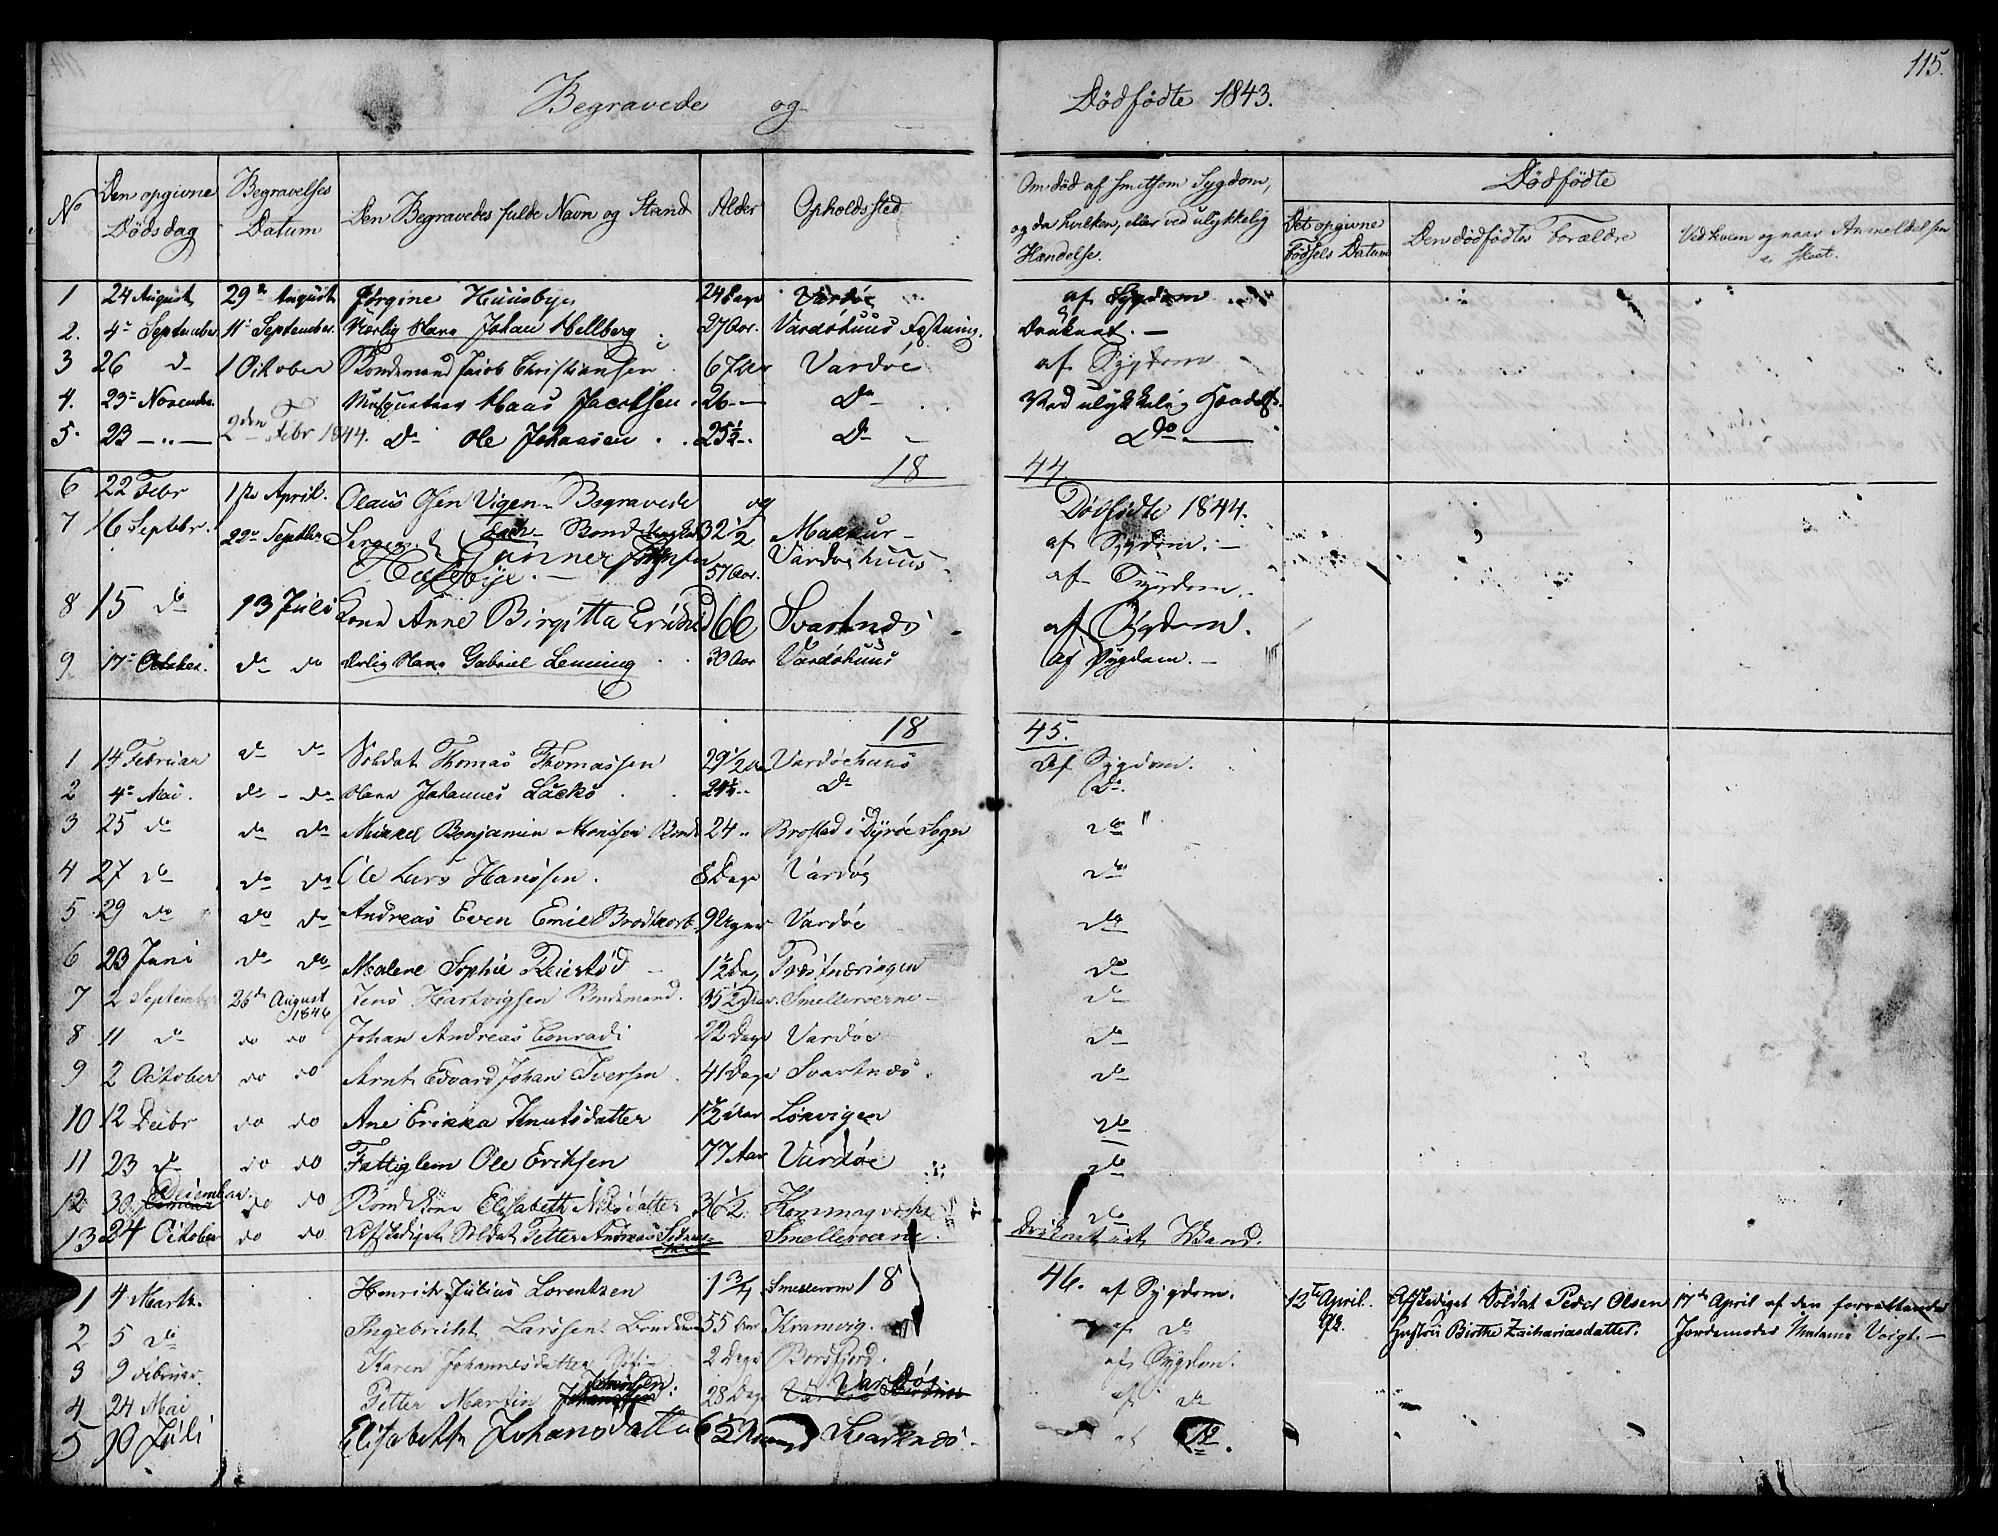 115.
Begravede og Dødfødte 1843.
No | Den opgivne Dødsdag | Begravelses Datum | Den Begravedes fulde Navn og Stand | Alder | Opholdssted | Om død af smitsom Sygdom, og da hvilken, eller ved ulykkelig Hændelse. | Dødfødte
Det opgivne Fødsels Datum | Den dødfødtes Forældre | Ved hvem og naar Anmeldelsen er skeet.
1 24 August 29de August Jørgine Huusbye 24 Dage Vardøe af Sygdom
2. 4de September 11te September Johan Hellberg 27 Aar. Vardøhuus Fæstning. Druknet. —
3 26 do 1 October Bondemand Jacob Christiansen 67 Aar Vardøe af Sygdom
4. 23de November Musqueteer Jacobsen 26 — Do Ved ulykkelig Hændelse.
5. 23 — " — 2den Febr 1844. Do Ole Johansen 25½ Do — Do —
18 44
6 22 Febr 1ste April. Olaus Olsen Vigen Begravede og Dødfødte 1844.
7 16 Septbr. 22de Septbr. Sergent Gunner Johnsen 32½ Makkur – af Sygdom. —
Helsebye. — 57 Aar. Vardøehuus af Sygdom.
8 15 do 13 Juli Kone Anne Birgitta 66 Svartnæs af Sygdom.
9 17de October. do do Gabriel Lenning 30 Aar Vardøhuus af Sygdom. —
18 45.
1 14 Februar do do Soldat Thomas Thomassen 29½ Aar Vardøehuus Af Sygdom.
2 4de Mai. do – do Johannes Lacko 24½ Do Do.
3 25 do do do Mikkel Benjamin Monssen 24 " Brostad i Dyrøe Sogn do "
4 27 do do do Ole Lars Hanssen. 8 Dage Vardøe do
5 29 do do do Andreas Even Emil Brodtkorb 9 Uger Vardøe do
6 23 Juni do do Malene Sophie Reiersød 1½ Dag Præstnæringen do
7 2 September 26de August 1846 Jens Hartvigsen Bondemand. 35½ Aar. Smellrorene – do
8 11 do do do Johan Andreas Conradi 22 Dage Vardøe do
9 2 October do do Arnt Edvard Johan Iversen. 41 Dage Svartnæs. do
10 12 Decbr do do Ane Erikka Knutsdatter 1½ Aar Løkvigen do
11 23 do do do Fattiglem Ole Eriksen 77 Aar Vardøe do
12 30 December do do Bond Kone Elisabeth Nilsdatter 36½ do
13 24 October do do Afskediget Soldat Petter Andreas Smellrorene. Druknet Vand.
1 4 Marts. Henrik Julius Lorentsen 1¾ Smellroren 18 46. af Sygdom. 12te April. Afskediget Soldat Peder Olsen 17de April af den forrettende
2 5 do Ingebricht Larssen 55 Aar Kramvig. af do Hustru Birthe Zachariasdatter. Jordemoder Madame Voigt. —
3 9 Februar. Karen Johannesdatter 2 Dage Baadsfjord. af Sygdom.
4 24 Mai Petter Martin Johansen. 28 Dage Vardøe af do
5 10 Juli Elisabeth Johansdatter 6½ Svartnæs. – af do.